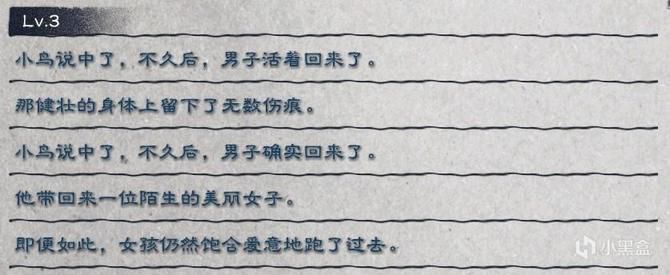 Lv.3
小鸟说中了，不久后，男子活着回来了。
那健壮的身体上留下了无数伤痕。
小鸟说中了，不久后，男子确实回来了。
他带回来一位陌生的美丽女子。
即便如此，女孩仍然饱含爱意地跑了过去。
小黑盒